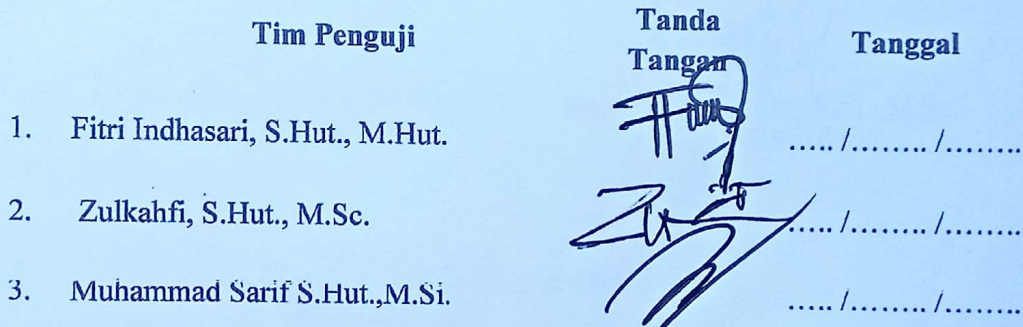 Tim Penguji Tanda Tangan Tanggal
1. Fitri Indhasari, S.Hut., M.Hut. ..... /........ /........
2. Zulkahfi, S.Hut., M.Sc. ..... /........ /........
3. Muhammad Sarif S.Hut.,M.Si. ..... /........ /........